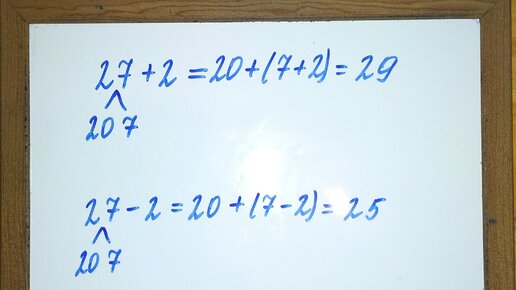 27+2=20+(7+2)=29
20 7
27-2=20+(7-2)=25
20 7